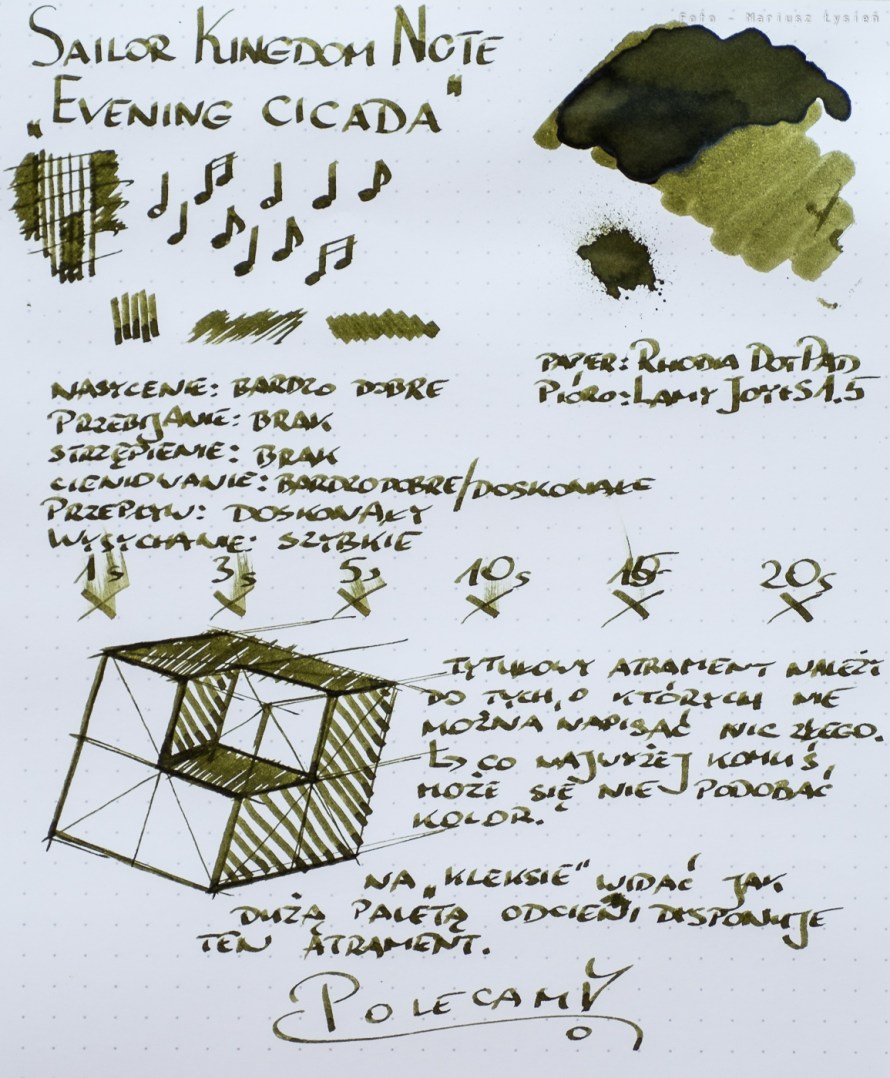 Foto - Mariusz Łysień
SAILOR KINGDOM NOTE
„EVENING CICADA"
PAPER: RHODIA DOTPAD
PIÓRO: LAMY JOY+S 1.5
NASYCENIE: BARDZO DOBRE
PRZEBIJANIE: BRAK
STRZĘPIENIE: BRAK
CIENIOWANIE: BARDZO DOBRE/DOSKONAŁE
PRZEPŁYW: DOSKONAŁY
WYSYCHANIE: SZYBKIE
1s 3s 5s 10s 15 20s
TYTUŁOWY ATRAMENT NALEŻY
DO TYCH, O KTÓRYCH NIE
MOŻNA NAPISAĆ NIC ZŁEGO.
↳ CO NAJWYŻEJ KOMUŚ
MOŻE SIĘ NIE PODOBAĆ
KOLOR.
NA „KLEKSIE" WIDAĆ JAK
DUŻĄ PALETĄ ODCIENI DYSPONUJE
TEN ATRAMENT.
POLECAMY!